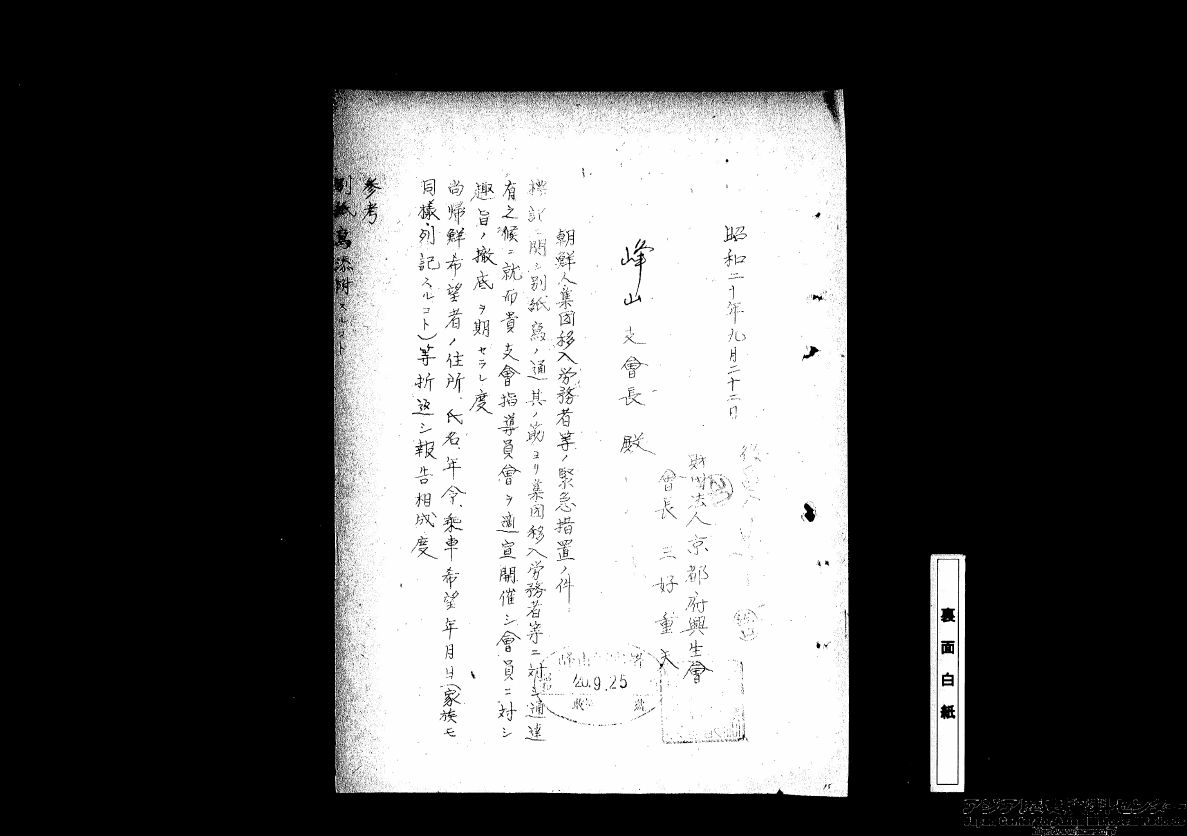 昭和二十年九月二十二日
財団法人京都府興生會
會長 三好重夫
峰山支會長殿
朝鮮人集団移入労務者等ノ緊急措置ノ件
標記ニ関シ別紙寫ノ通其ノ筋ヨリ集団移入労務者等ニ対シ通達
有之候ニ就而貴支會指導員會ヲ適宜開催シ會員ニ対シ
趣旨ノ撤底ヲ期セラレ度
尚帰鮮希望者ノ住所、氏名、年令、乗車希望年月日(家族モ
同様列記スルコト)等折返シ報告相成度
参考
別紙寫添附スルコト
20.9.25
15
裏面白紙
アジア歴史資料センター
Japan Center for Asian Historical Records